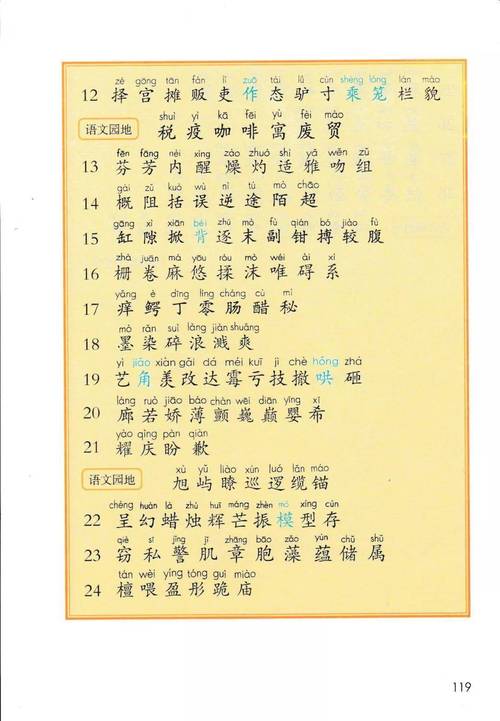 zé gōng tān fàn lì zuō tài lǘ cùn shèng lóng lán mào
12 择宫摊贩吏作态驴寸乘笼栏貌
shuì yì kā fēi yù fèi mào
语文园地 税疫咖啡寓废贸
fēn fāng nèi xǐng zào zhuó shì yǎ wěn zǔ
13 芬芳内醒燥灼适雅吻组
gài zǔ kuò wù nì tú mò chāo
14 概阻括误逆途陌超
gāng xì xiān bēi zhú mò fù qián bó jiào fù
15 缸隙掀背逐末副钳搏较腹
zhà juàn má yōu róu mò wéi ài xì
16 栅卷麻悠揉沫唯碍系
yǎng è dīng líng cháng cù mì
17 痒鳄丁零肠醋秘
mò rǎn suì làng jiàn shuǎng
18 墨染碎浪溅爽
yì jiǎo xiàn gǎi dá méi kuī jì chè hòng zá
19 艺角羡改达霉亏技撤哄砸
láng ruò jiāo báo chàn wēi diān yīng xī
20 廊若娇薄颤巍巅婴希
yào qìng pàn qiàn
21 耀庆盼歉
xù yǔ liào xún luó lǎn máo
语文园地 旭屿瞭巡逻缆锚
chéng huàn là zhú huī máng zhèn mó xíng cún
22 呈幻蜡烛辉芒振模型存
qiè sī jǐng jī zhāng bāo zǎo yùn chǔ shǔ
23 窃私警肌章胞藻蕴储属
tán wèi yíng tóng guì miào
24 檀喂盈彤跪庙
119